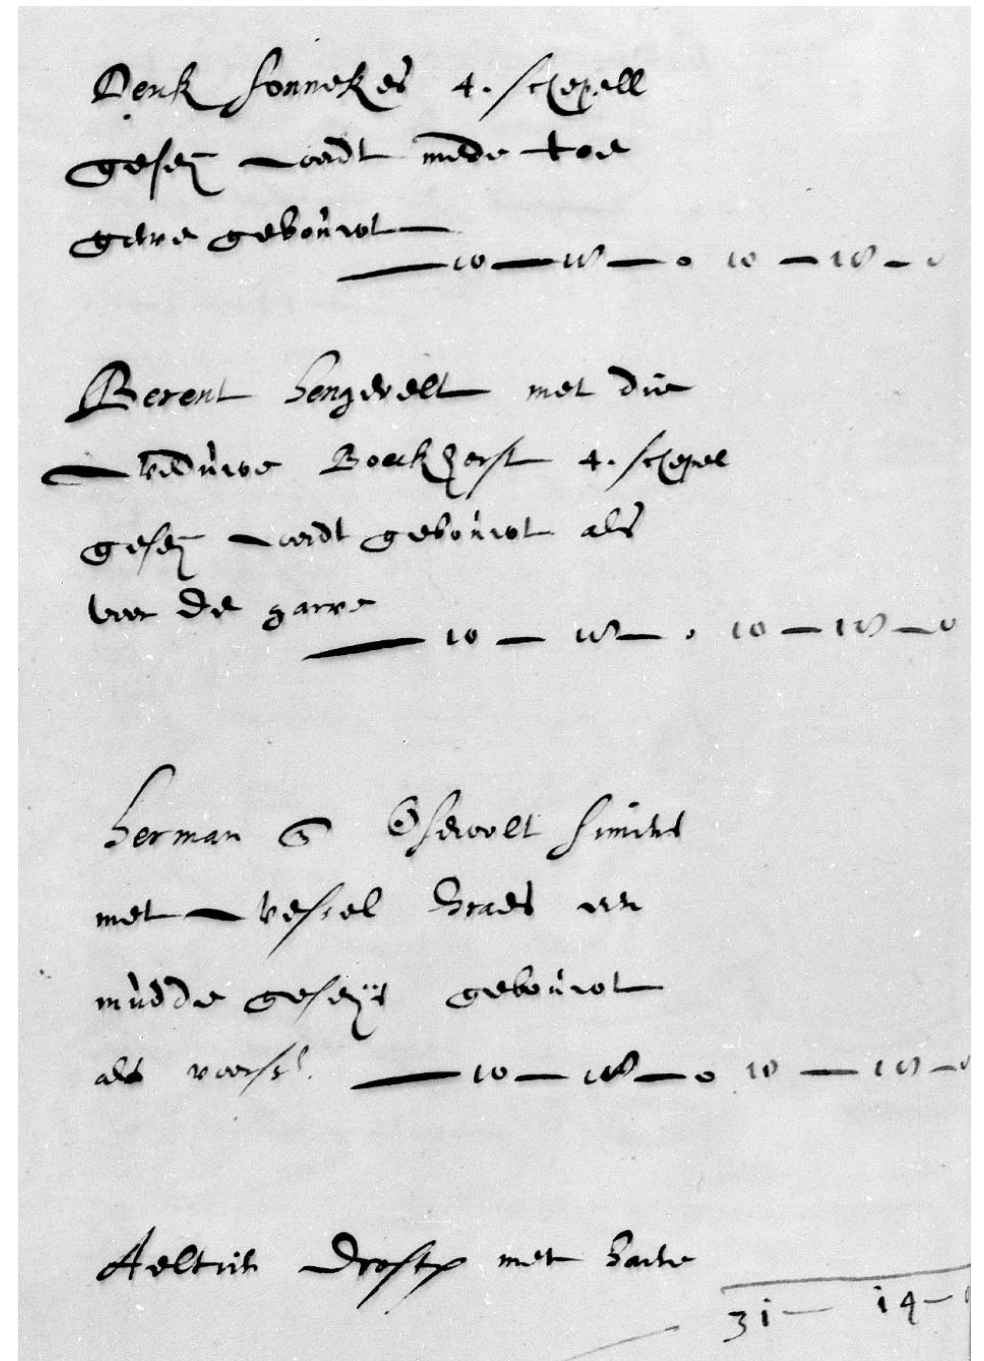 Derck sonnekes 4. schepell
gesey wordt mede toe
gerve gebouwt
10 — 18 — 0 10 — 18 — 0
Berent hengevelt met die
weduwe Boeckhorst 4. schepel
gesey wordt gebouwt als
voer de garve
10 — 18 — 0 10 — 18 — 0
herman Osewolt
met wessel braes een
mudde geseys gebouwt
als voers. 10 — 18 — 0 10 — 18 — 0
Aeltien Droste met
31 — 14 —